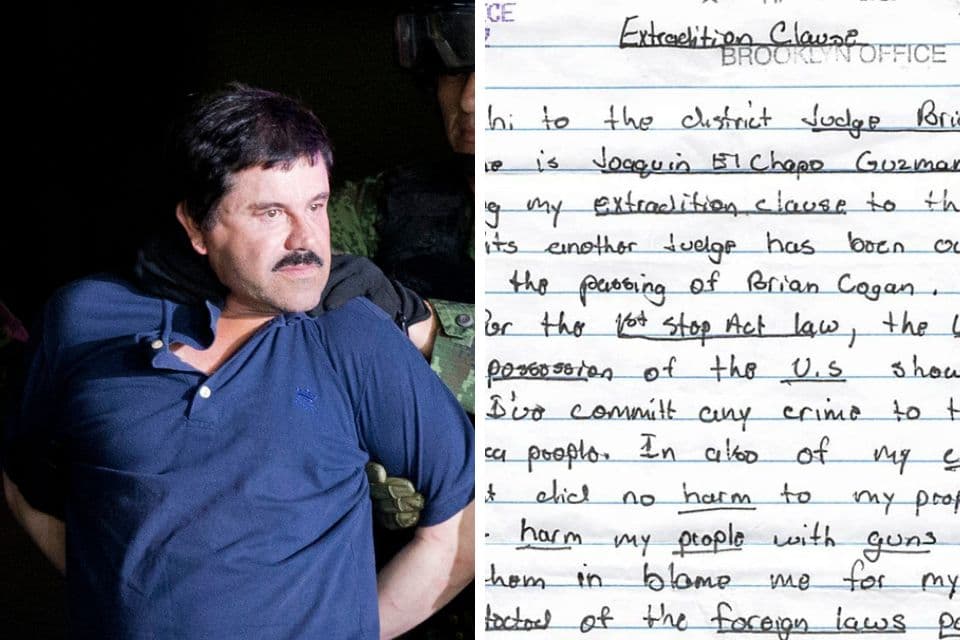 CE
Extradition Clause
BROOKLYN OFFICE
hi to the district Judge Bria
is Joaquin El Chapo Guzman
g my extradition clause to th
its another Judge has been
the passing of Brian Cogan.
for the 1st Stop Act law, the
possession of the U.S show
I've committ any crime to t
ca people. In also of my
did no harm to my prop
harm my people with guns
hem in blame me for my
of the foreign laws